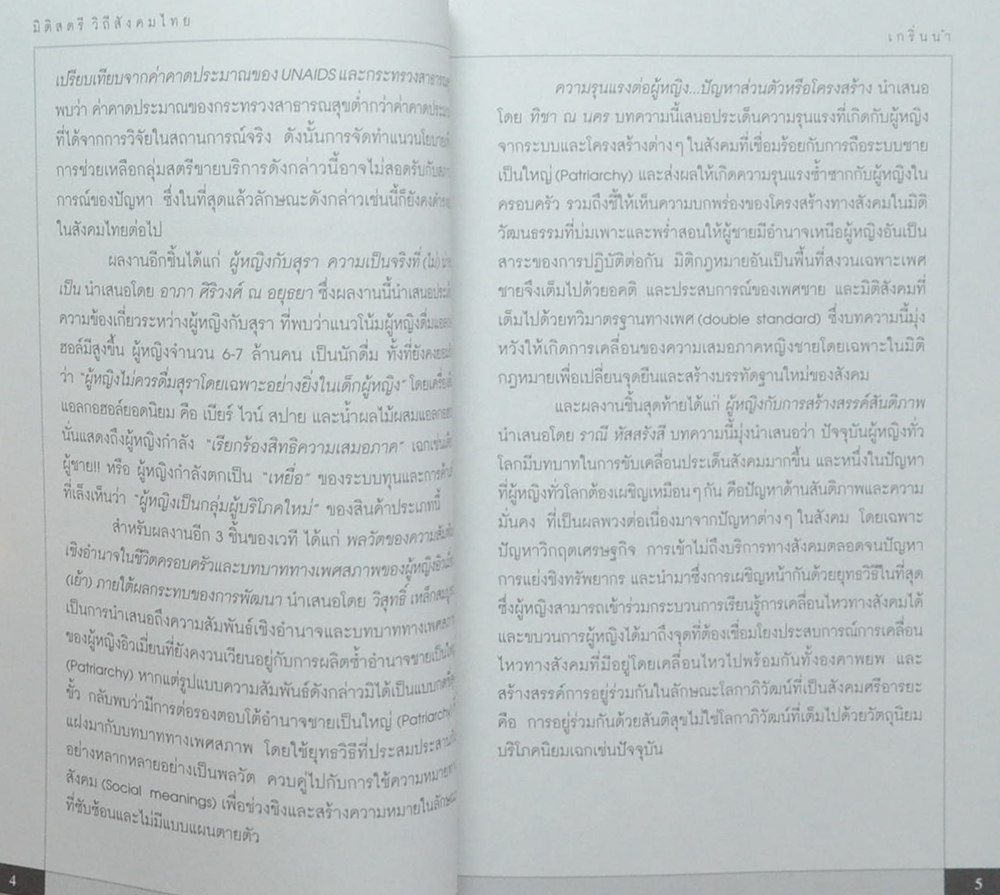 มิติสตรี วิถีสังคมไทย
เปรียบเทียบจากค่าคาดประมาณของ UNAIDS และกระทรวง
พบว่า ค่าคาดประมาณของกระทรวงสาธารณสุขต่ำกว่าค่า
ที่ได้จากการวิจัยในสถานการณ์จริง ดังนั้นการจัดทำแนว
การช่วยเหลือกลุ่มสตรีขายบริการดังกล่าวนี้อาจไม่สอดรับกับ
การณ์ของปัญหา ซึ่งในที่สุดแล้วลักษณะดังกล่าวเช่นนี้ก็ยังคง
ในสังคมไทยต่อไป
ผลงานอีกชิ้นได้แก่ ผู้หญิงกับสุรา ความเป็นจริงที่ (ไม่)
เป็น นำเสนอโดย อาภา ศิริวงศ์ ณ อยุธยา ซึ่งผลงานนี้นำเสนอ
ความข้องเกี่ยวระหว่างผู้หญิงกับสุรา ที่พบว่าแนวโน้มผู้หญิงดื่ม
ฮอล์มีสูงขึ้น ผู้หญิงจำนวน 6-7 ล้านคน เป็นนักดื่ม ทั้งที่ยังคง
ว่า "ผู้หญิงไม่ควรดื่มสุราโดยเฉพาะอย่างยิ่งในเด็กผู้หญิง" โดย
แอลกอฮอล์ยอดนิยม คือ เบียร์ ไวน์ สปาย และน้ำผลไม้ผสม
นั่นแสดงถึงผู้หญิงกำลัง "เรียกร้องสิทธิความเสมอภาค" เฉกเช่น
ผู้ชาย!! หรือ ผู้หญิงกำลังตกเป็น "เหยื่อ" ของระบบทุนและการ
ที่เล็งเห็นว่า "ผู้หญิงเป็นกลุ่มผู้บริโภคใหม่" ของสินค้าประเภทนี้
สำหรับผลงานอีก 3 ชิ้นของเวที ได้แก่ พลวัตของความ
เชิงอำนาจในชีวิตครอบครัวและบทบาททางเพศสภาพของผู้หญิง
(เย้า) ภายใต้ผลกระทบของการพัฒนา นำเสนอโดย วิสุทธิ์
เป็นการนำเสนอถึงความสัมพันธ์เชิงอำนาจและบทบาททาง
ของผู้หญิงอิวเมี่ยนที่ยังคงวนเวียนอยู่กับการผลิตซ้ำอำนาจชาย
(Patriarchy) หากแต่รูปแบบความสัมพันธ์ดังกล่าวมิได้เป็นแบบ
ขั้ว กลับพบว่ามีการต่อรองตอบโต้อำนาจชายเป็นใหญ่ (Patriarchy)
แฝงมากับบทบาททางเพศสภาพ โดยใช้ยุทธวิธีที่ประสมประสาน
อย่างหลากหลายอย่างเป็นพลวัต ควบคู่ไปกับการใช้ความหมาย
สังคม (Social meanings) เพื่อช่วงชิงและสร้างความหมายใน
ที่ซับซ้อนและไม่มีแบบแผนตายตัว
4
เกริ่นนำ
ความรุนแรงต่อผู้หญิง...ปัญหาส่วนตัวหรือโครงสร้าง นำเสนอ
โดย ทิชา ณ นคร บทความนี้เสนอประเด็นความรุนแรงที่เกิดกับผู้หญิง
จากระบบและโครงสร้างต่างๆ ในสังคมที่เชื่อมร้อยกับการถือระบบชาย
เป็นใหญ่ (Patriarchy) และส่งผลให้เกิดความรุนแรงซ้ำซากกับผู้หญิงใน
ครอบครัว รวมถึงชี้ให้เห็นความบกพร่องของโครงสร้างทางสังคมในมิติ
วัฒนธรรมที่บ่มเพาะและพร่ำสอนให้ผู้ชายมีอำนาจเหนือผู้หญิงอันเป็น
สาระของการปฏิบัติต่อกัน มิติกฎหมายอันเป็นพื้นที่สงวนเฉพาะเพศ
ชายจึงเต็มไปด้วยอคติ และประสบการณ์ของเพศชาย และมิติสังคมที่
เต็มไปด้วยทวิมาตรฐานทางเพศ (double standard) ซึ่งบทความนี้มุ่ง
หวังให้เกิดการเคลื่อนของความเสมอภาคหญิงชายโดยเฉพาะในมิติ
กฎหมายเพื่อเปลี่ยนจุดยืนและสร้างบรรทัดฐานใหม่ของสังคม
และผลงานชิ้นสุดท้ายได้แก่ ผู้หญิงกับการสร้างสรรค์สันติภาพ
นำเสนอโดย ราณี หัสสรังสี บทความนี้มุ่งนำเสนอว่า ปัจจุบันผู้หญิงทั่ว
โลกมีบทบาทในการขับเคลื่อนประเด็นสังคมมากขึ้น และหนึ่งในปัญหา
ที่ผู้หญิงทั่วโลกต้องเผชิญเหมือนๆ กัน คือปัญหาด้านสันติภาพและความ
มั่นคง ที่เป็นผลพวงต่อเนื่องมาจากปัญหาต่างๆ ในสังคม โดยเฉพาะ
ปัญหาวิกฤตเศรษฐกิจ การเข้าไม่ถึงบริการทางสังคมตลอดจนปัญหา
การแย่งชิงทรัพยากร และนำมาซึ่งการเผชิญหน้ากันด้วยยุทธวิธีในที่สุด
ซึ่งผู้หญิงสามารถเข้าร่วมกระบวนการเรียนรู้การเคลื่อนไหวทางสังคมได้
และขบวนการผู้หญิงได้มาถึงจุดที่ต้องเชื่อมโยงประสบการณ์การเคลื่อน
ไหวทางสังคมที่มีอยู่โดยเคลื่อนไหวไปพร้อมกันทั้งองคาพยพ และ
สร้างสรรค์การอยู่ร่วมกันในลักษณะโลกาภิวัฒน์ที่เป็นสังคมศรีอารยะ
คือ การอยู่ร่วมกันด้วยสันติสุขไม่ใช่โลกาภิวัฒน์ที่เต็มไปด้วยวัตถุนิยม
บริโภคนิยมเฉกเช่นปัจจุบัน
5